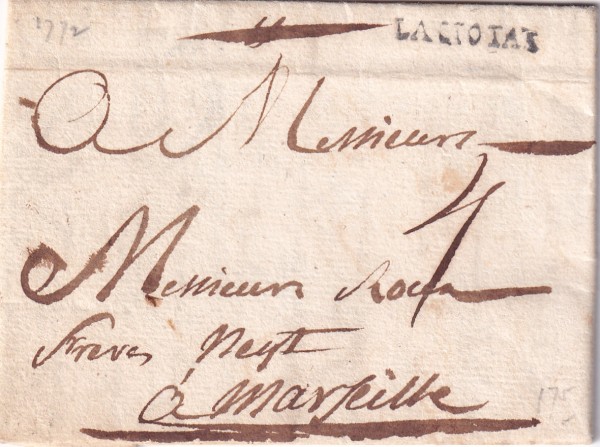 1772
LACIOTAT
A Messieurs
4
Messieurs Roux
freres Negt
à Marseille
175